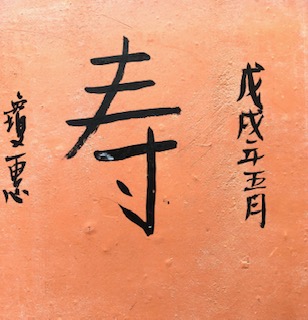 戊戌年五月
寿
瓊惠